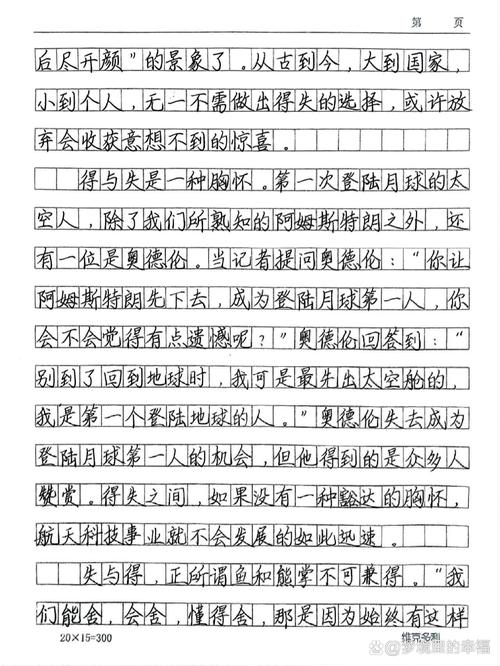 第 页
后尽开颜”的景象了。从古到今，大到国家，
小到个人，无一不需做出得失的选择，或许放
弃会收获意想不到的惊喜。
得与失是一种胸怀。第一次登陆月球的太
空人，除了我们所熟知的阿姆斯特朗之外，还
有一位是奥德伦。当记者提问奥德伦：“你让
阿姆斯特朗先下去，成为登陆月球第一人，你
会不会觉得有点遗憾呢？”奥德伦回答到：“
别到了回到地球时，我可是最先出太空舱的，
我是第一个登陆地球的人。”奥德伦失去成为
登陆月球第一人的机会，但他得到的是众多人
赞赏。得失之间，如果没有一种豁达的胸怀，
航天科技事业就不会发展的如此迅速。
失与得，正所谓鱼和熊掌不可兼得。“我
们能舍，会舍，懂得舍，那是因为始终有这样
20×15=300
维克多利